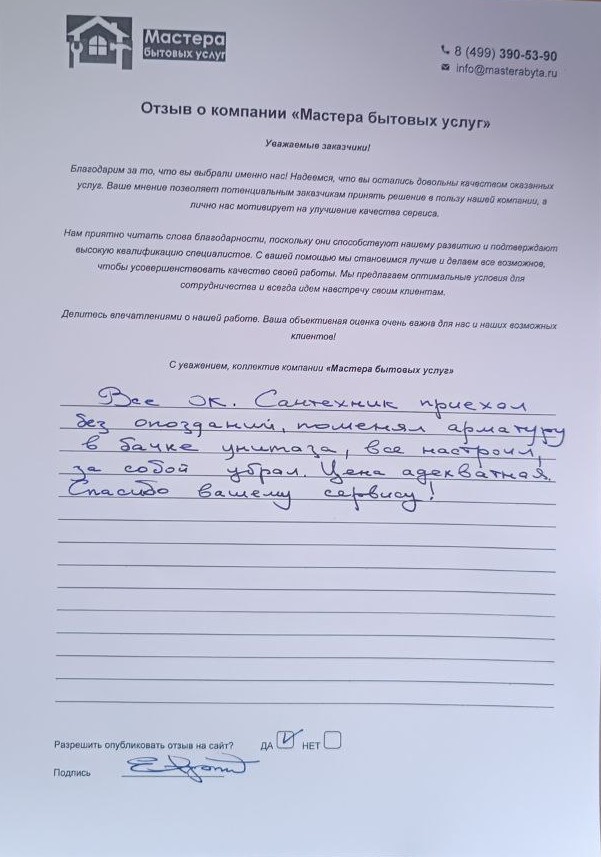 Мастера
бытовых услуг
8 (499) 390-53-90
info@masterabyta.ru
Отзыв о компании «Мастера бытовых услуг»
Уважаемые заказчики!
Благодарим за то, что вы выбрали именно нас! Надеемся, что вы остались довольны качеством оказанных
услуг. Ваше мнение позволяет потенциальным заказчикам принять решение в пользу нашей компании, а
лично нас мотивирует на улучшение качества сервиса.
Нам приятно читать слова благодарности, поскольку они способствуют нашему развитию и подтверждают
высокую квалификацию специалистов. С вашей помощью мы становимся лучше и делаем все возможное,
чтобы усовершенствовать качество своей работы. Мы предлагаем оптимальные условия для
сотрудничества и всегда идем навстречу своим клиентам.
Делитесь впечатлениями о нашей работе. Ваша объективная оценка очень важна для нас и наших возможных
клиентов!
С уважением, коллектив компании «Мастера бытовых услуг»
Все ок. Сантехник приехал
без опозданий, поменял арматуру
в бачке унитаза, все настроил,
за собой убрал. Цена адекватная.
Спасибо вашему сервису!
Разрешить опубликовать отзыв на сайт? ДА НЕТ
Подпись